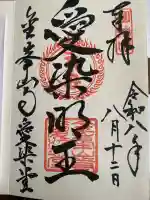 奉拝
令和八年
八月十二日
愛染明王
金峯山寺愛染堂